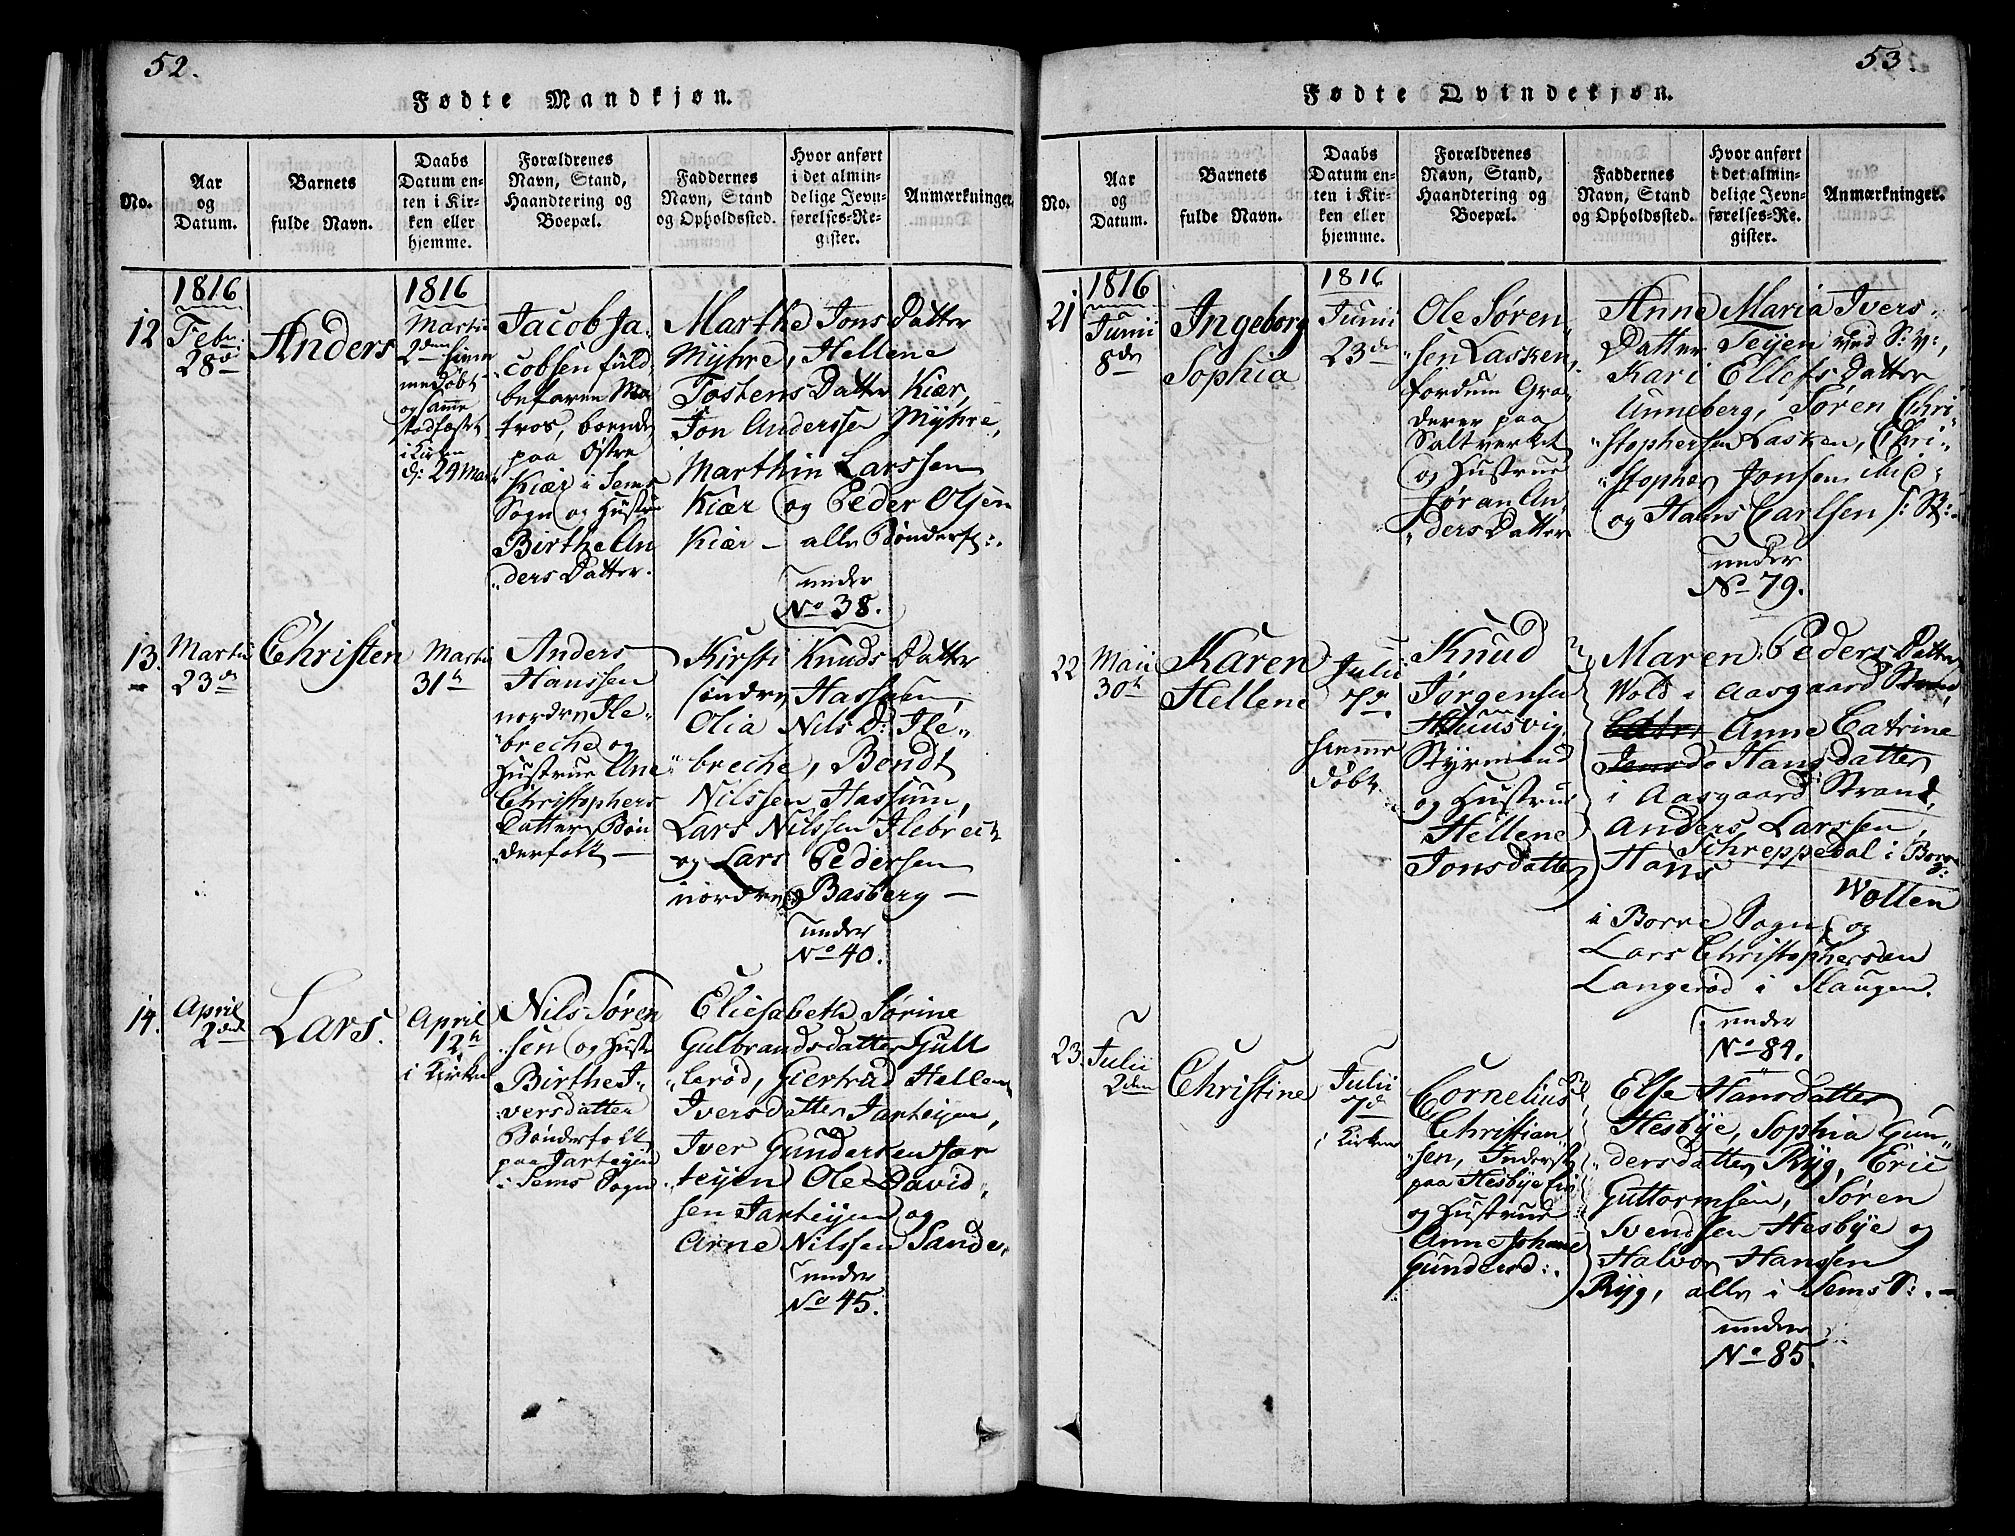 52.
Fødte Mandkjøn.
No.
Aar
og
Datum.
Barnets
fulde Navn.
Daabs
Datum en-
ten i Kir-
ken eller
hjemme.
Forældrenes
Navn, Stand,
Haandtering og
Boepæl.
Faddernes
Navn, Stand
og Opholdssted.
Hvor anført
i det almin-
delige Jevn-
førelses-Re-
gister.
Anmærkninger.
12
1816
Febr:
28de
Anders
1816
Martii
2den hiem̄e
døbt
og samme
stadfæstet
i Kirken
d: 24 Mart
Jacob Ja-
cobsen fuld
befaren Ma-
tros, boende
paa Østre
Kiær i Sems
Sogn og Hustru
Birthe An
ders Datter.
Marthe Jons Datter
Myhre, Hellene
Tostens Datter Kiær,
Jon Anderssen Myhre,
Marthin Larssen
Kiær og Peder Olsen
Kiær – alle Bønderf:.
under
No 38.
13.
Martii
23de
Christen
Martii
31th
Anders
Hanssen
nordre Ile-
breche og
Hustrue Ane
Christophers
Datter Bøn
derfolk –
Kirsti Knuds Datter
søndre Hassum,
Olia Nils D: Ile-
breche, Bendt
Nilssen Hassum,
Lars Nilssen Ilebrech
og Lars Pedersen
nordre Basberg –
under
No 40.
14.
April
2den
Lars.
April
12th
i Kirken
Nils Søren
sen og Hustr
Birthe I-
versdatter
Bønderfolk
paa Jarteijen
i Sems Sogn
Eliesabeth Sørine
Gulbrandsdatter Gull
lerød, Giertrud Hellene
Iversdatter Jarteijen,
Iver Gundersen Jar
teijen Ole David-
sen Jarteijen og
Arne Nilssen Sande.
under
No 45.
53.
Fødte Qvindekjøn.
No.
Aar
og
Datum.
Barnets
fulde Navn.
Daabs
Datum en-
ten i Kir-
ken eller
hjemme.
Forældrenes
Navn, Stand,
Haandtering og
Boepæl.
Faddernes
Navn, Stand
og Opholdssted.
Hvor anført
i det almin-
delige Jevn-
førelses-Re-
gister.
Anmærkninger.
21
1816
Junii
8de
Ingeborg
Sophia
1816
Junii
23de
Ole Søren-
sen Lasken,
fordum Gra-
derer paa
Saltverket
og Hustrue
Jøran An-
ders Datter
Anne Maria Ivers
Datter Teijen ved S: V:,
Kari Ellefs Datter
Unneberg, Søren Chri-
stophersen Lasken, Chri-
stopher Jonsen Mid-
og Hans Carlsen S: V:.
under
No 79.
22
Maii
30th
Karen
Hellene
Julii
7de.
hiemme
døbt
Knud
Jørgensen
Huusvig
Styrmand
og Hustrue
Hellene
Jonsdatter
Maren Peders Datter
Wold i Aasgaard Strand,
Anne Catrine
Hansdatter
i Aasgaard Strand,
Anders Larssen
Schreppedal i Borre
Hans Wollen
i Borre Sogn, og
Lars Christophersen
Langerød i Slaugen.
under
No 84.
23.
Julii
2den
Christine
Julii
7de
i Kirken
Cornelius
Christian
sen, Inderst
paa Hesbye
og Hustrue
Anne Johane
Gundersd:.
Else Hansdatter
Hesbye, Sophia Gun-
dersdatter Ryg, Eric
Guttormsen, Søren
Svendsen Hesbye og
Halvor Hanssen
Ryg, alle i Sems S:. –
under
No 85.